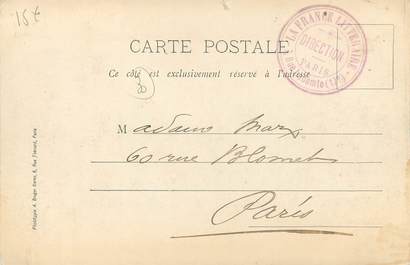 15t
CARTE POSTALE
Ce côté est exclusivement réservé à l'adresse
LA FRANCE LITTÉRAIRE
DIRECTION
PARIS
Madame Marx
60 rue Blomet
Paris